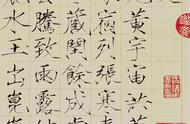 黃宇宙洪
宿列張寒來
藏閏餘成歲
騰致雨露
水玉出崑